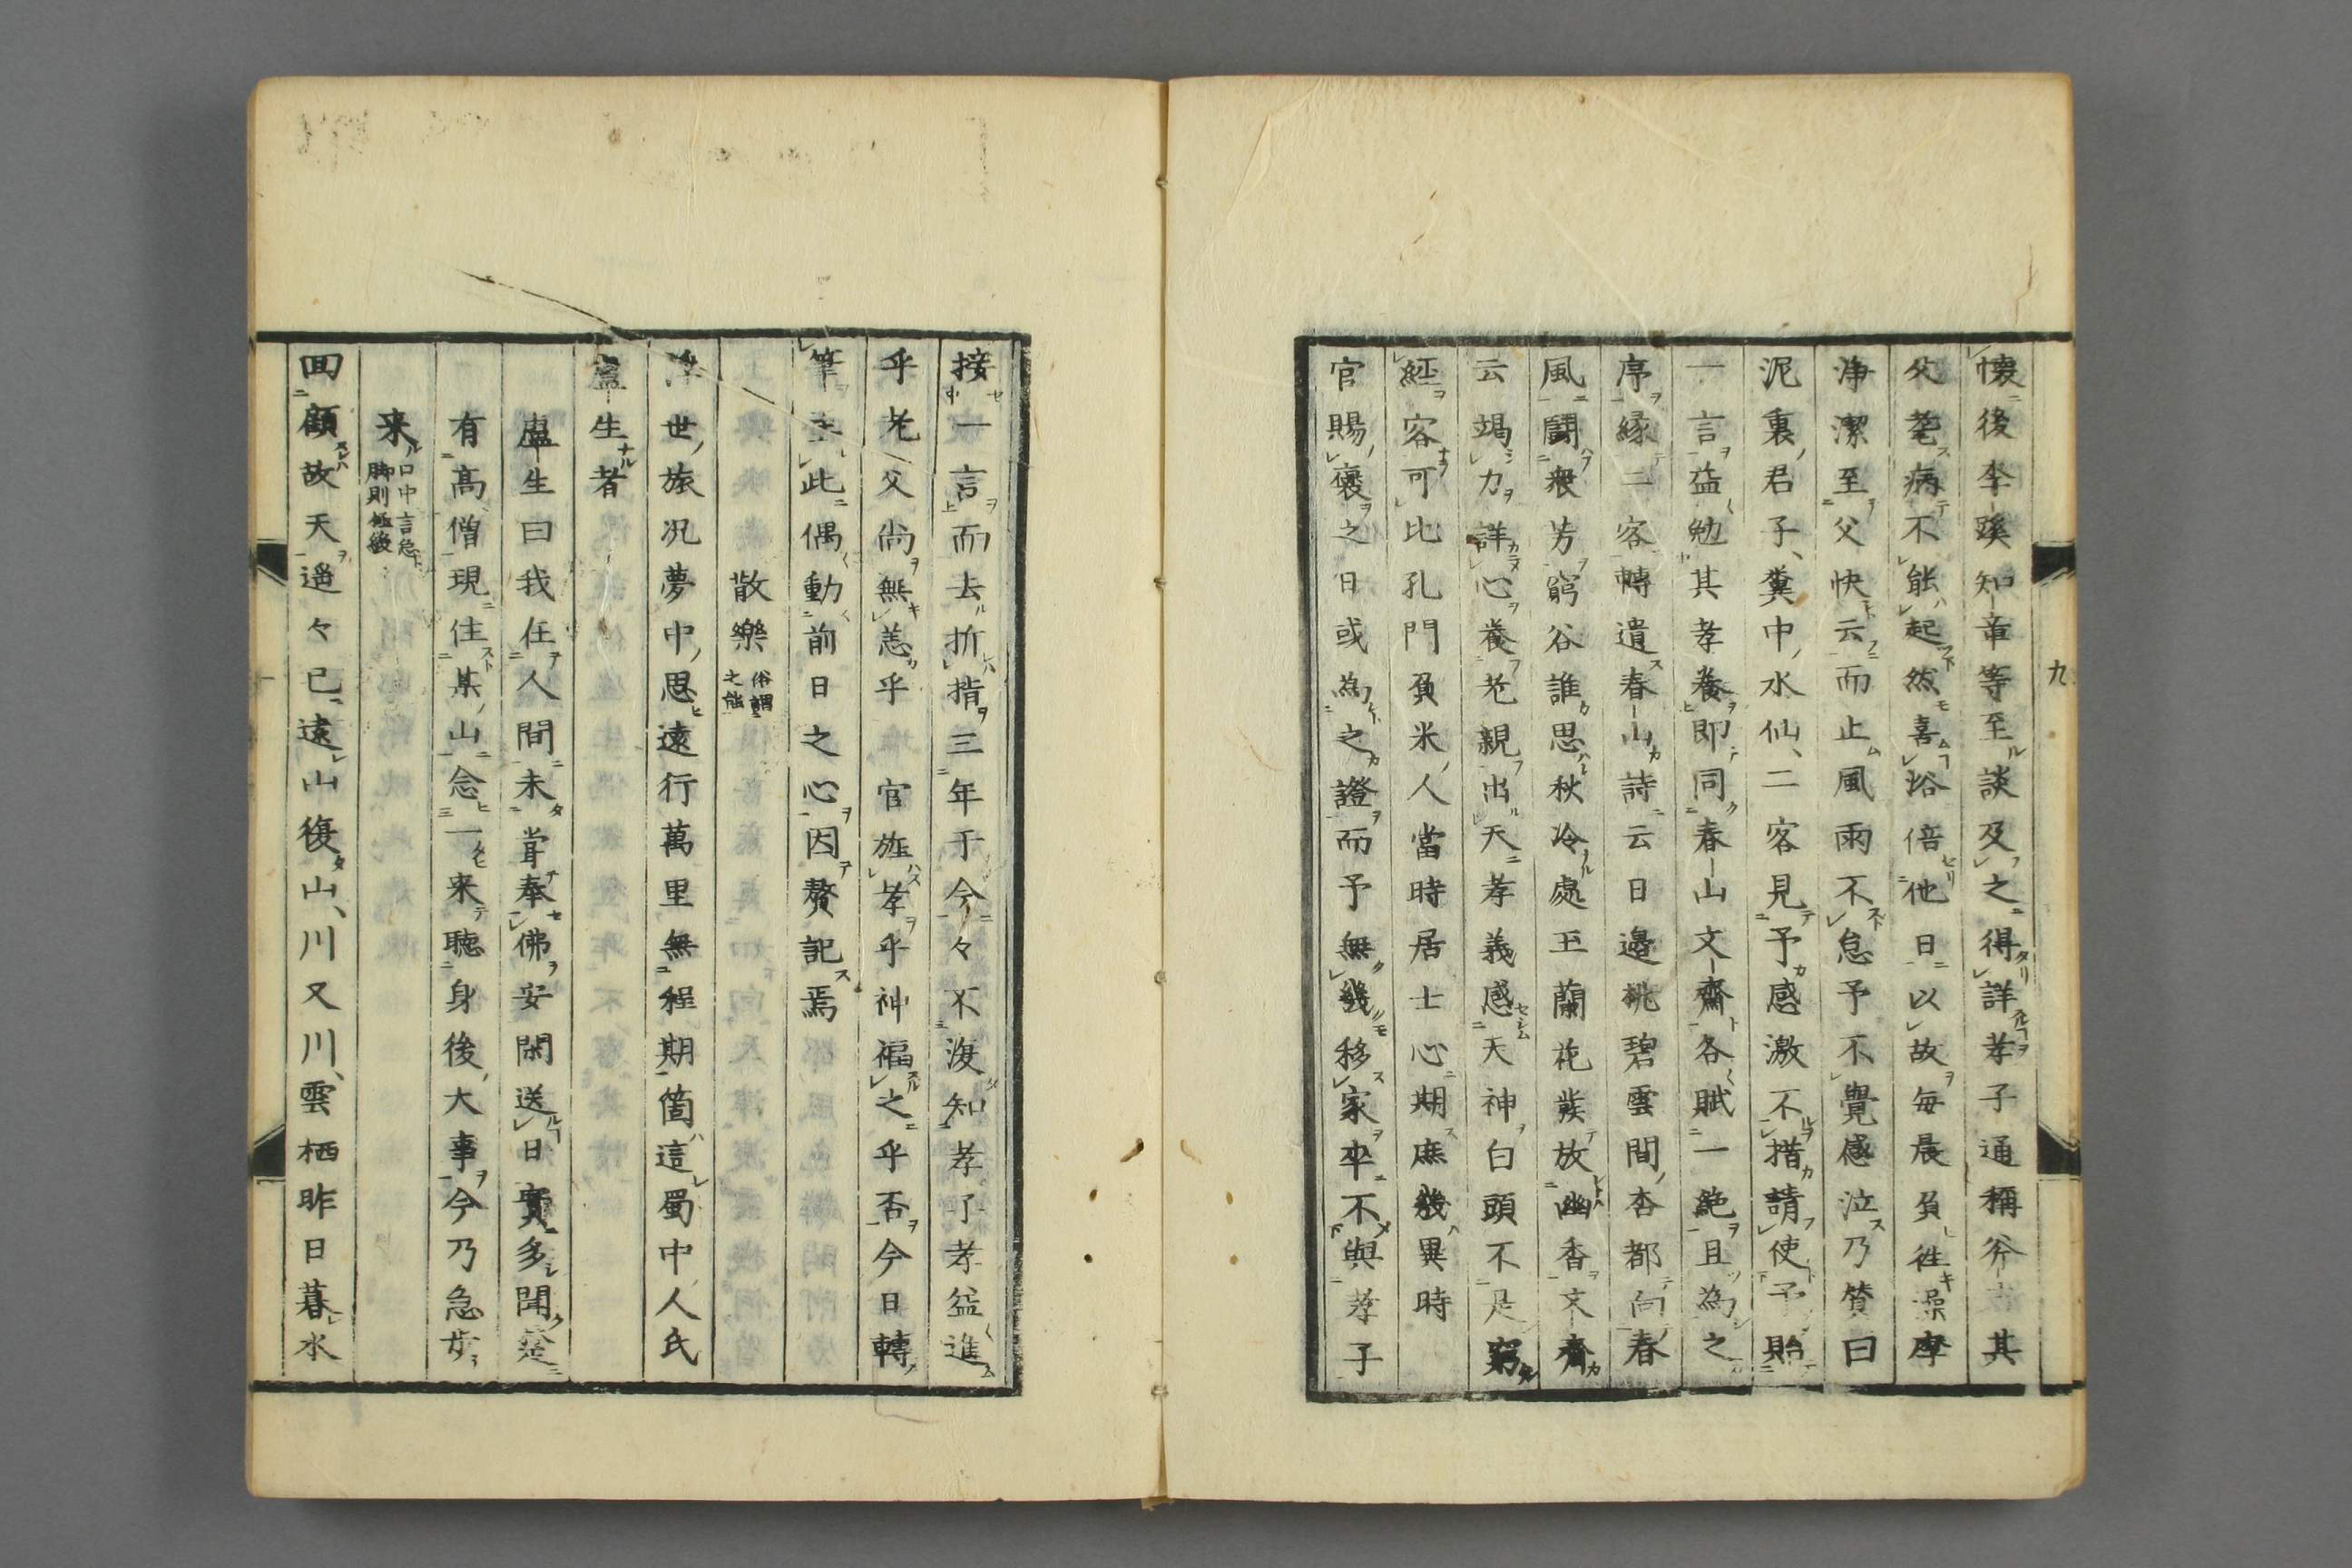 九
懷後李蹊知章等至談及之得詳孝子通稱斧其
父耄病不能起然喜塔倍他日以故每晨負徃澡摩
淨潔至父快云而止風雨不怠予不覺感泣乃贊曰
泥裏君子糞中水仙二客見予感激不措請使予貽
一言益勉其孝養即同春山文齋各賦一絶且為之
序縁二客轉遺春山詩云日邊桃碧雲間杏都向春
風鬪衆芳窮谷誰思秋冷處玉蘭花發放幽香文齋
云竭力詳心養老親出天孝義感天神白頭不是窮
經客可比孔門負米人當時居士心期庶幾異時
官賜褒之日或為之證而予無幾移家卒不與孝子
接一言而去折指三年于今々不復知孝了孝益進
乎老父尚無恙乎官旌孝乎神福之乎否今日轉
筆至此偶動前日之心因贅記焉
散樂俗謂之能
浮世旅况夢中思遠行萬里無程期箇這蜀中人氏
盧生者
盧生曰我在人間未甞奉佛安閑送日實多聞楚
有高僧現住某山念一来聽身後大事今乃急步
来口中言急脚則極緩
回顧故天遥々已遠山復山川又川雲栖昨日暮水